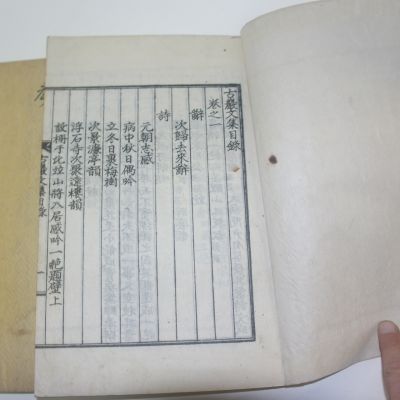 古巖文集目錄
卷之一
辭
次歸去來辭
詩
元朝志感
病中秋日偶吟
立冬日裏梅樹
次景濂亭韻
浮石寺次嚴遠樓韻
設柵于 山將入居感吟一絶題壁上
古巖文集目錄
一